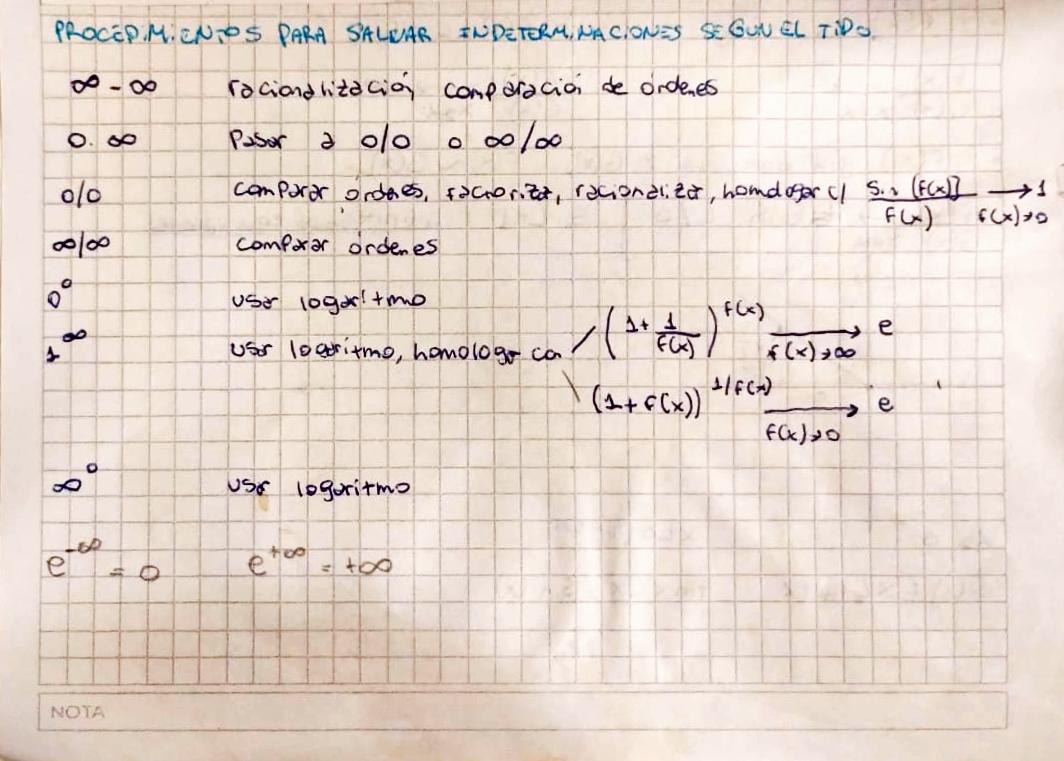 PROCEDIMIENTOS PARA SALVAR INDETERMINACIONES SEGUN EL TIPO
∞ - ∞ racionalización, comparación de órdenes
0. ∞ Pasar a 0/0 o ∞/∞
0/0 comparar órdenes, factorizar, racionalizar, homologar c/ sin [f(x)] / f(x) → 1 f(x)→0
∞/∞ comparar órdenes
0^0 usar logaritmo
1^∞ usar logaritmo, homologar con (1 + 1/f(x))^f(x) → e f(x)→∞
(1 + f(x))^1/f(x) → e f(x)→0
∞^0 usar logaritmo
e^-∞ = 0 e^+∞ = +∞
NOTA